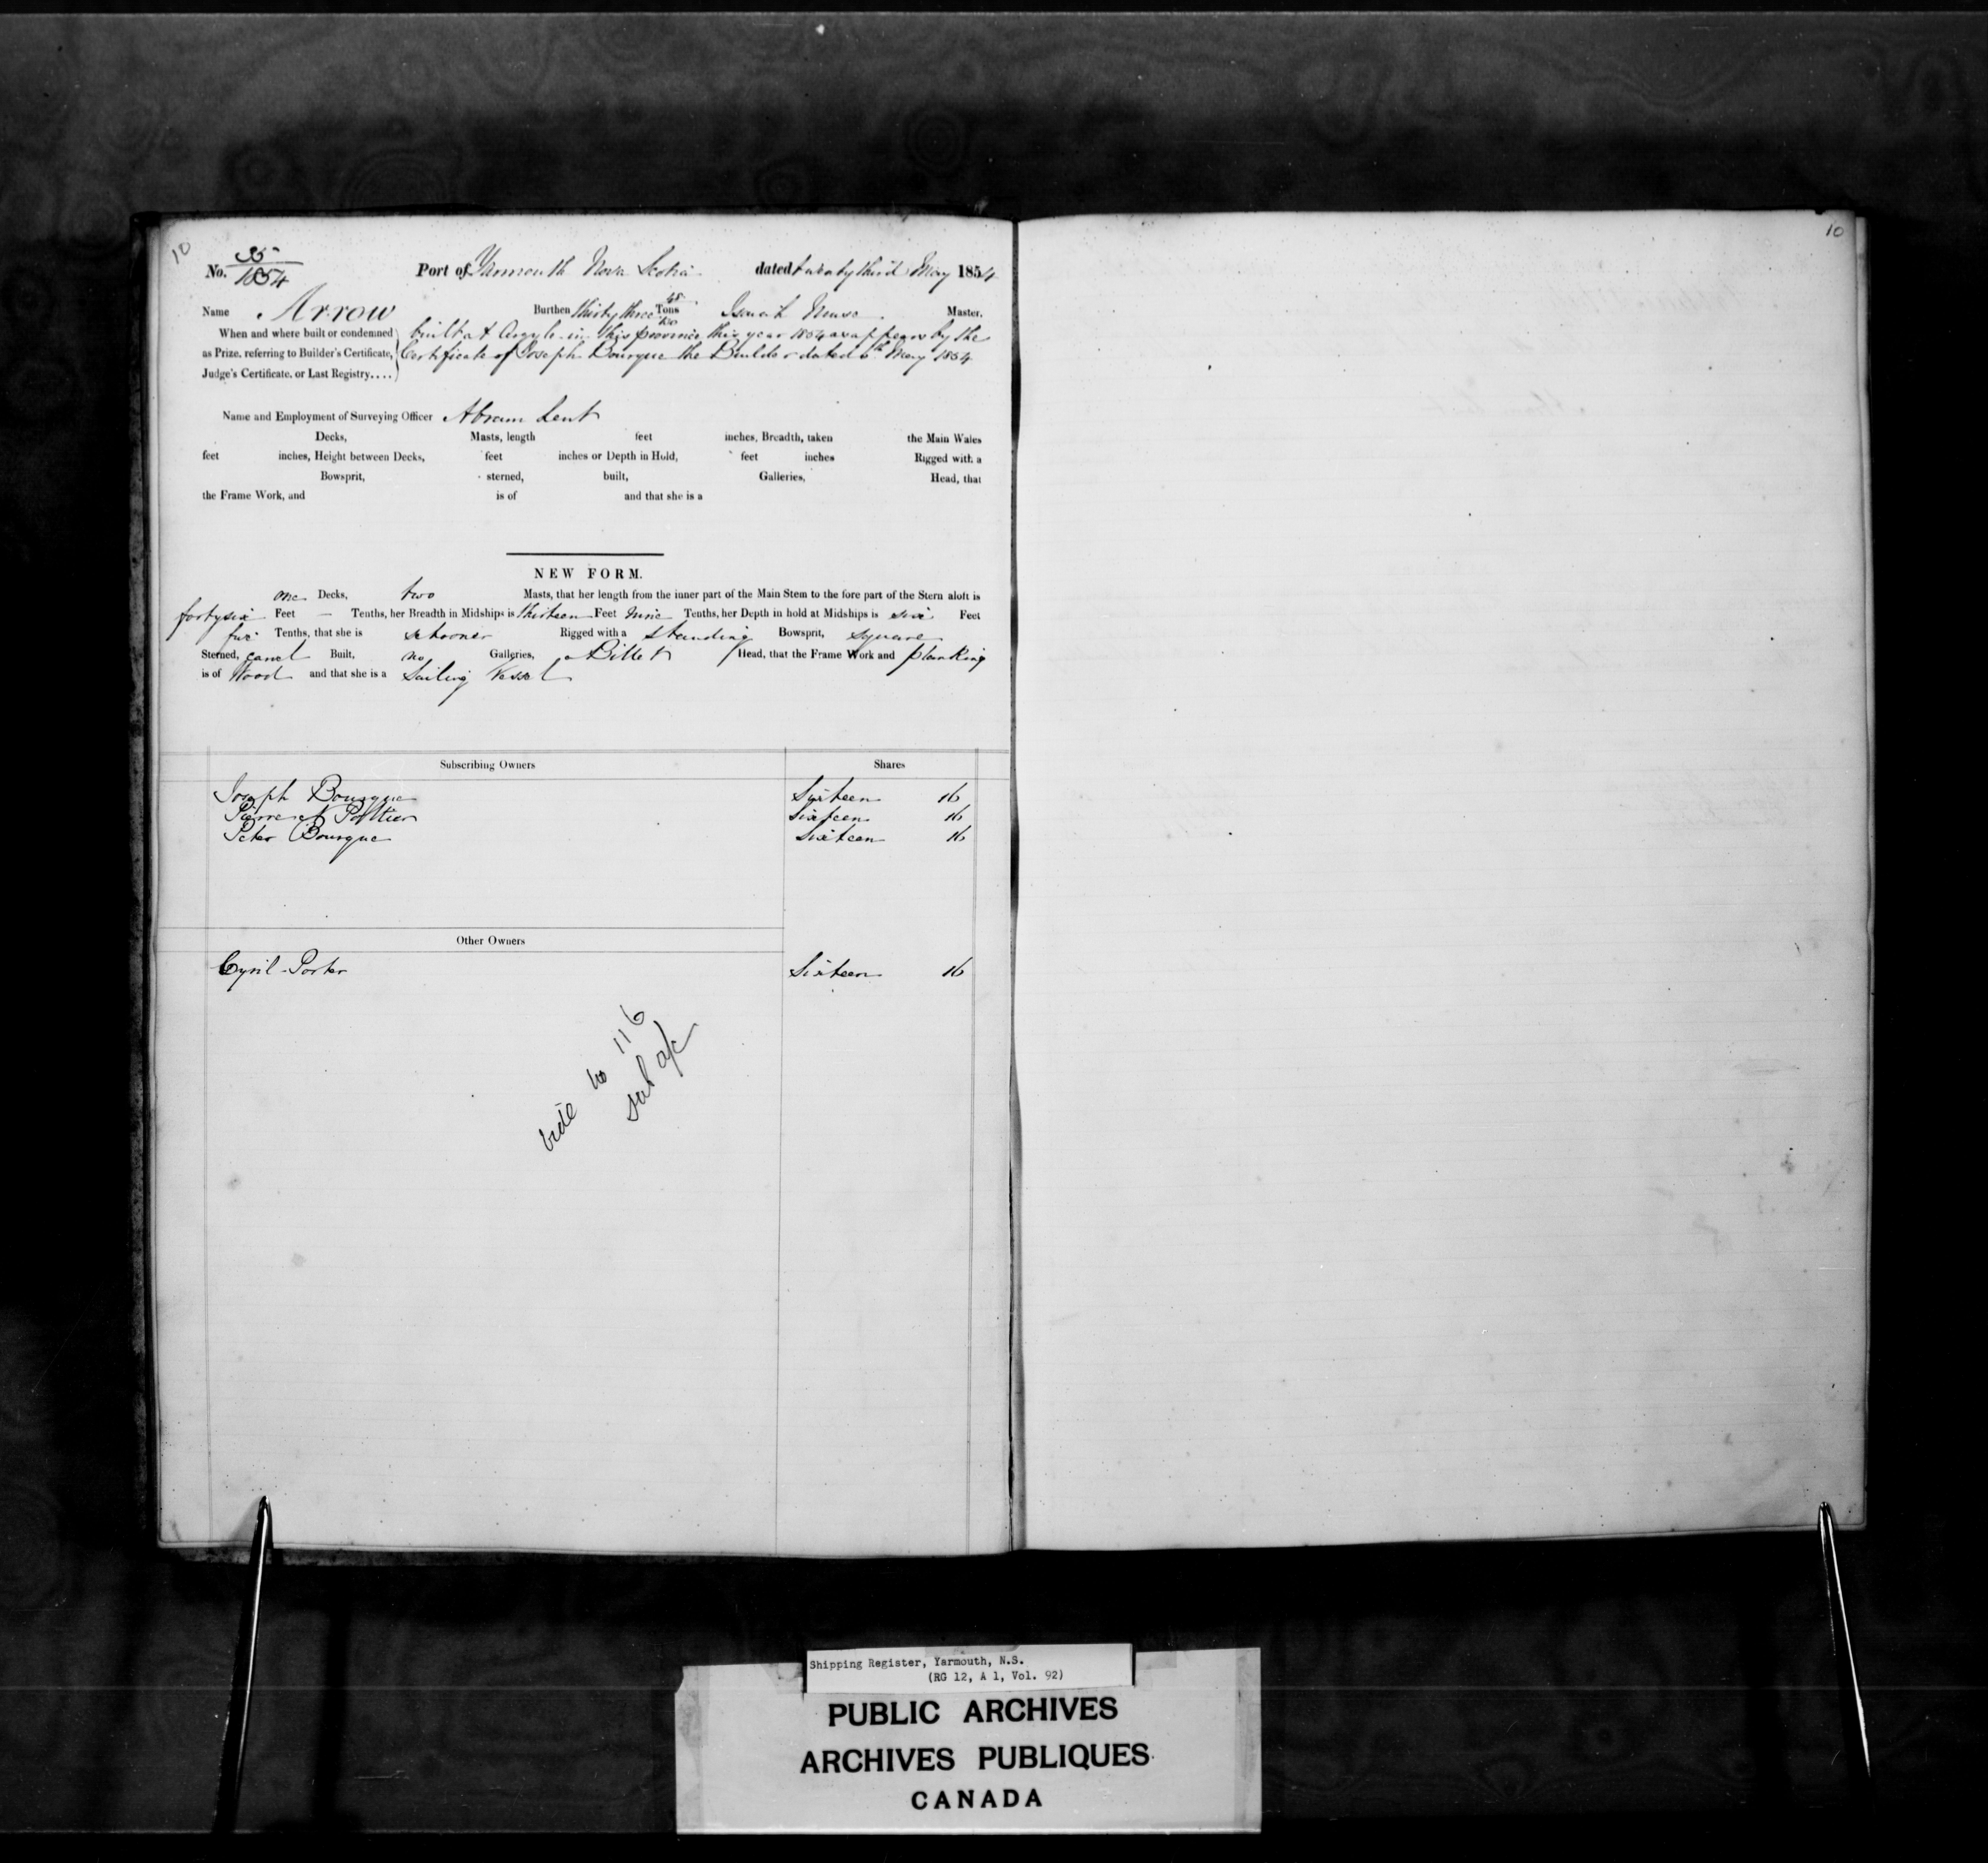 10
10
No. 35/1854 Port of Yarmouth Nova Scotia dated twenty third May 1854
Name Arrow Burthen thirty three Tons Master.
When and where built or condemned built at Argyle in this province this year 1854 as appears by the
as Prize, referring to Builder's Certificate, Certificate of Joseph Bourque the Builder dated 6th May 1854
Judge's Certificate, or Last Registry....
Name and Employment of Surveying Officer Abram Lent
Decks, Masts, length feet inches, Breadth, taken the Main Wales
feet inches, Height between Decks, feet inches or Depth in Hold, feet inches Rigged with a
Bowsprit, sterned, built, Galleries, Head, that
the Frame Work, and is of and that she is a
NEW FORM.
one Decks, two Masts, that her length from the inner part of the Main Stem to the fore part of the Stern aloft is
forty six Feet — Tenths, her Breadth in Midships is thirteen Feet nine Tenths, her Depth in hold at Midships is six Feet
Tenths, that she is schooner Rigged with a standing Bowsprit, square
Sterned, carvel Built, no Galleries, a Billet Head, that the Frame Work and planking
is of Wood and that she is a Sailing Vessel
Subscribing Owners Shares
Joseph Bourque Sixteen 16
Pierre Pottier Sixteen 16
Peter Bourque Sixteen 16
Other Owners
Cyril Porter Sixteen 16
vide No 116
Shipping Register, Yarmouth, N.S.
(RG 12, A 1, Vol. 92)
PUBLIC ARCHIVES
ARCHIVES PUBLIQUES
CANADA